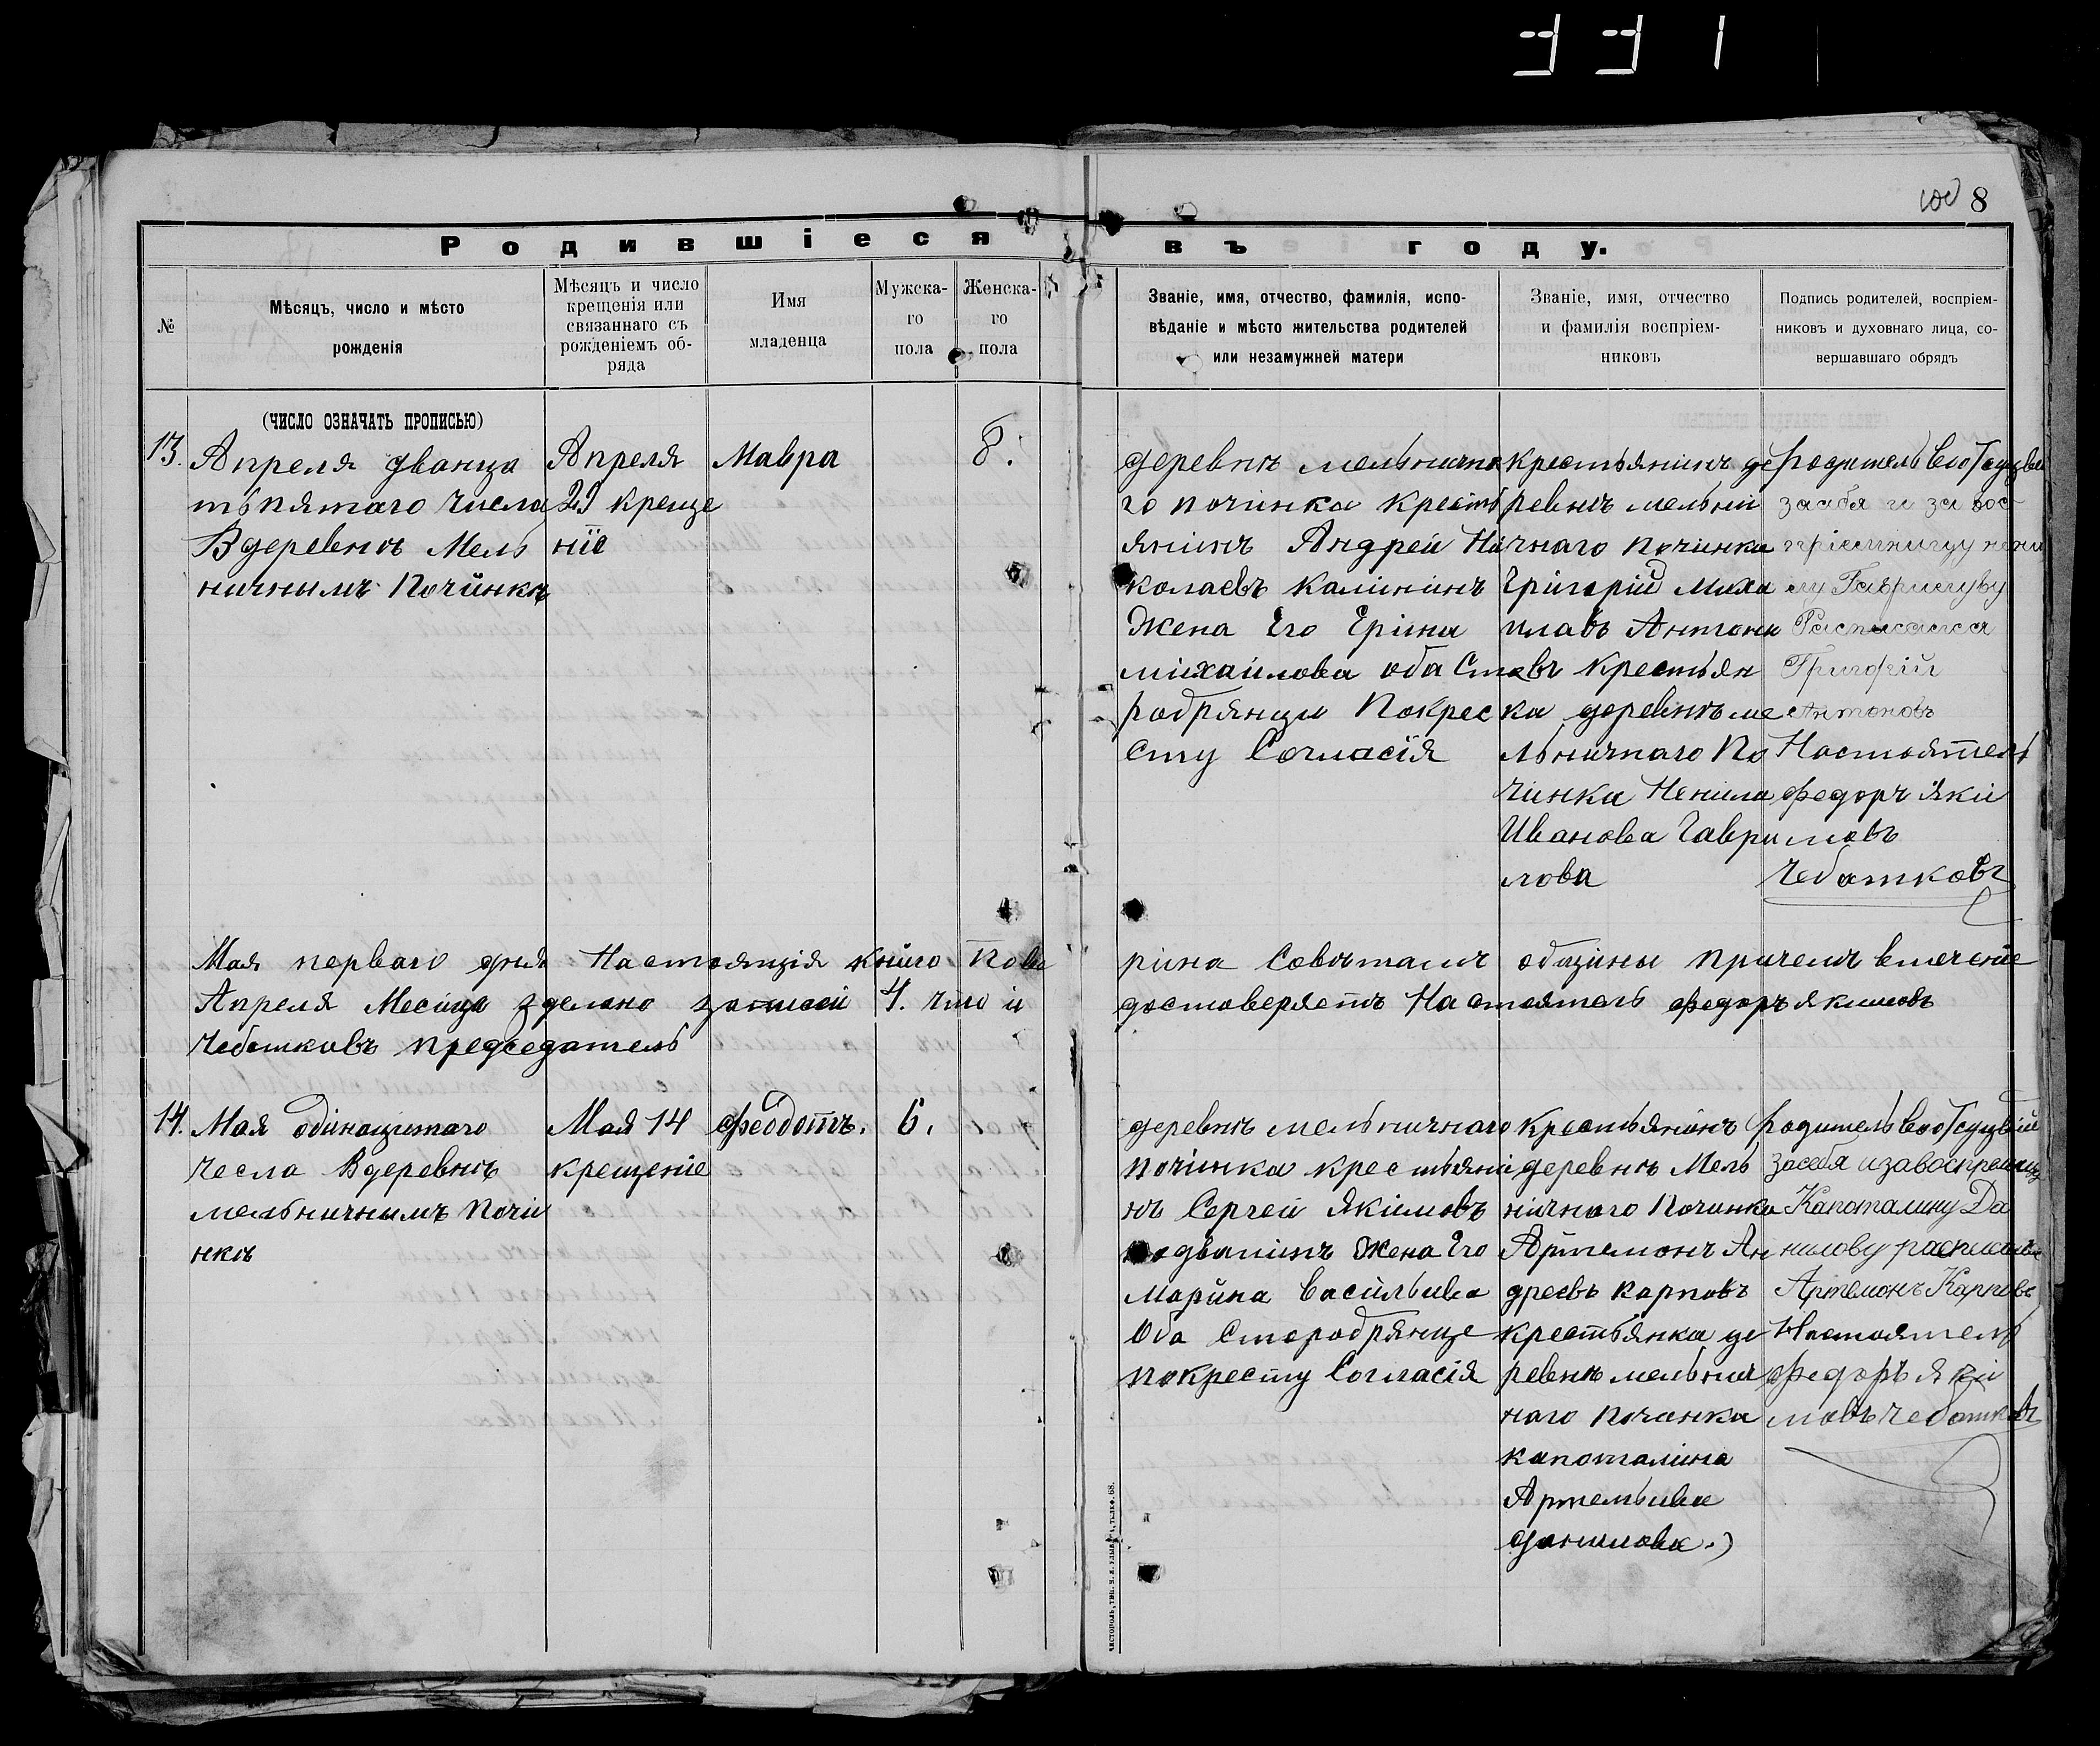 331
8
Родившіеся въ году.
№
Мѣсяцъ, число и мѣсто
рожденія
Мѣсяцъ и число
крещенія или
связаннаго съ
рожденіемъ об-
ряда
Имя
младенца
Мужска-
го
пола
Женска-
го
пола
Званіе, имя, отчество, фамилія, испо-
вѣданіе и мѣсто жительства родителей
или незамужней матери
Званіе, имя, отчество
и фамилія воспріем-
никовъ
Подпись родителей, воспріем-
никовъ и духовнаго лица, со-
вершавшаго обрядъ
(ЧИСЛО ОЗНАЧАТЬ ПРОПИСЬЮ)
13.
Апреля дванца
тьпятаго числа
Вдеревнѣ Мель
ничнымъ Починкѣ
Апреля
креще
ніе
Мавра
8.
деревнѣ мельнично
го починка кресть
янинъ Андрей Ни
колаевъ Калининъ
Жена Его Ерина
михайлова оба Ста
робрянцы Покрес
ту Согласія
крестьянинъ де
ревнѣ мельни
чнаго Починка
Григорій Миха
илавъ Антоно
въ крестьян
ка деревнѣ ме
льничнаго По
чинка Ненила
Иванова Гаври
лова
Родитель
засебя и за вос
пріемницу нени
лу
Росписался
Григорій
Антоновъ
Настоятель
Федоръ Яки
мовъ
Чебатковъ
Мая перваго дня Настоящія книга Пове
рина Совѣтамъ общины причемъ втечение
Апреля Месяца зделано записей 4. что и
достоверяетъ Настоятель Федоръ якимовъ
Чебатковъ председатель
14.
Мая одинацитаго
Числа Вдеревнѣ
мельничнымъ Почи
нкѣ
Мая 14
крещеніе
Феодотъ.
6.
деревнѣ мельничнаго
починка крестьяни
нъ Сергей Якимовъ
Жена Его
Марина Васильива
Оба Старобрянце
покресту Согласія
Крестьянинъ
деревнѣ Мель
ничного Починка
Артемонъ Ан
дреевъ Карповъ
крестьянка де
ревнѣ мельнич
наго Починка
капоталина
Артемьива
данилова.
родитель
засебя изавоспреемницу
Капоталину Да
нилову росписался
Артемонъ Карповъ
Настоятель
Федоръ яки
мовъ Чебатковъ